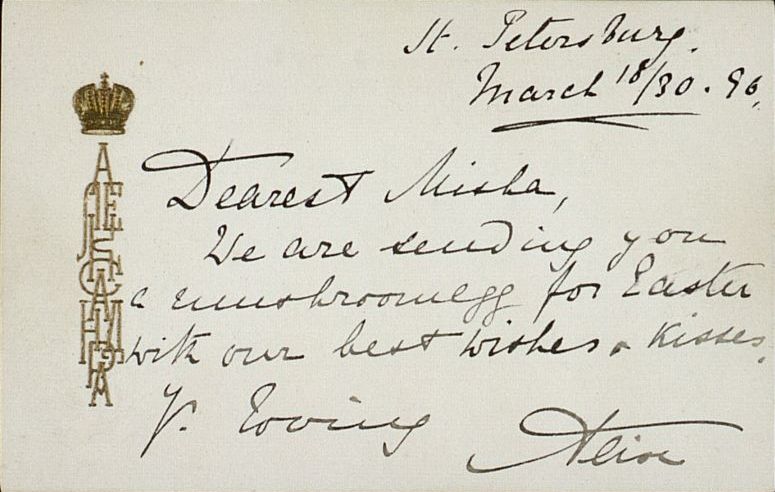 St. Petersburg.
March 18/30. 96.
Dearest Misha,
We are sending you
a mushroomegg for Easter
with our best wishes & kisses.
Y. loving Alix